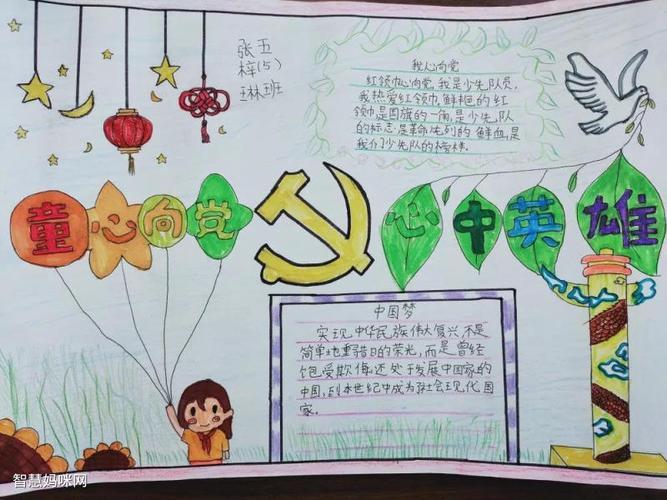 张 五
梓(5)
琳班
我心向党
红领巾心向党,我是少先队员,
我热爱红领巾,鲜艳的红
领巾是国旗的一角,是少先队
的标志,是革命先烈的鲜血,是
我们少先队的榜样.
童心向党
心中英雄
中国梦
实现中华民族伟大复兴,不是
简单地重拾昔日的荣光,而是曾经
饱受欺侮,还处于发展中国家的
中国,到本世纪中成为社会现代化国
家.
智慧妈咪网